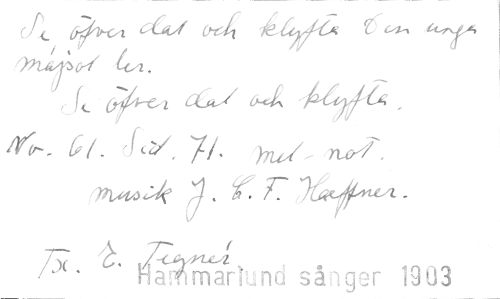 Se öfver dal och klyfta Den unga
majsol ler.
Se öfver dal och klyfta.
No. 61. Sid. 71. mel-not.
musik J. C. F. Hæffner.
Tx. E. Tegnér.
Hammarlund sånger 1903